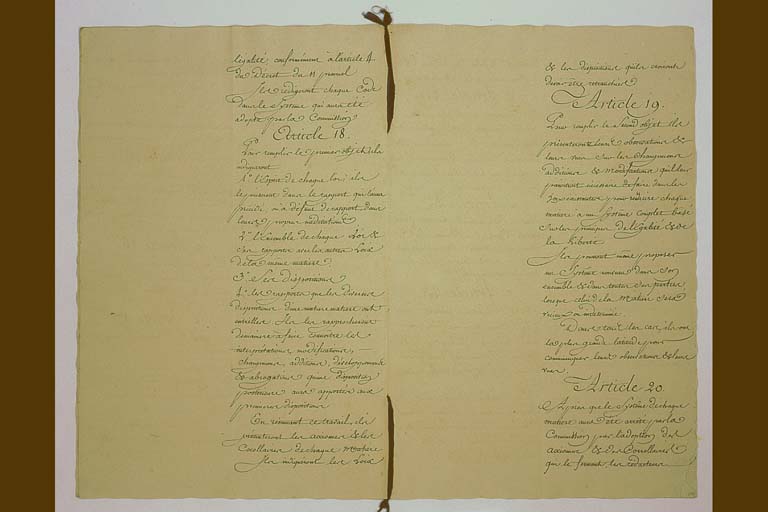 légalité, conformément à l'article 4.
du Décret du 11 prairial
Ils rédigeront chaque Code
dans le Système qui aura été
adopté par la Commission
Article 18.
Pour remplir le premier objet ils
rédigeront
1.° L'Esprit de chaque loi, ils
le puiseront dans le rapport qui l'aura
précédé, ou à défaut de rapport dans
leurs propres méditations
2.° L'Ensemble de chaque Loi &
ses rapports avec les autres Loix
de la même matière
3.° Ses dispositions
4.° les rapports que les diverses
dispositions d'une même matière ont
entr'elles. Ils les rapprocheront
de manière à faire connoître les
interprétations, modifications,
changemens, additions, développemens
& abrogations qu'une disposition
postérieure aura apportés aux
premières dispositions
En terminant ce travail, ils
présenteront les axiomes & les
Corollaires de chaque matière
Ils rédigeront les Loix
& les dispositions qu'ils croiront
devoir être retranchées
Article 19.
Pour remplir le Second objet Ils
présenteront leurs observations &
leurs vues Sur les changemens
additions & modifications qu'il leur
paroîtroit nécessaire de faire dans les
Loix existantes, pour réduire chaque
matière à un Système complet basé
Sur les principes de l'Egalité & de
la Liberté
Ils pourront même proposer
un Système nouveau dans Son
ensemble & dans toutes Ses parties,
lorsque celui de la matière Sera
vicieux ou indéterminé
Dans tous les cas, ils ont
la plus grande latitude pour
communiquer leurs observations & leurs
vues.
Article 20.
Après que le Système de chaque
matière aura été arrêté par la
Commission par l'adoption des
axiomes & des Corollaires
qui le forment, les rédacteurs